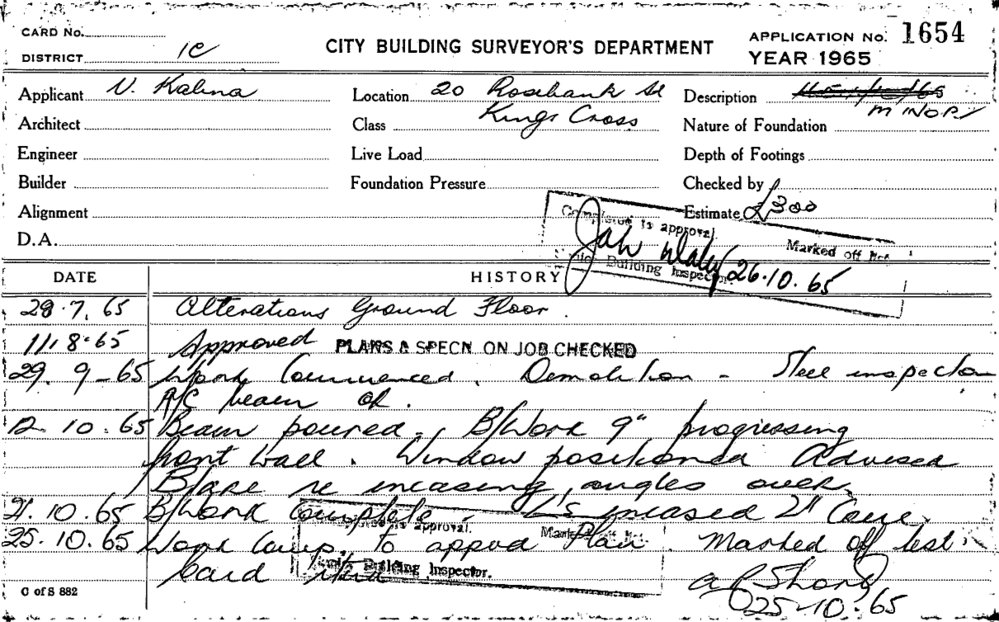 CARD No.
DISTRICT 1C
CITY BUILDING SURVEYOR'S DEPARTMENT
APPLICATION No. 1654
YEAR 1965
Applicant V. Kalina
Location 20 Rosebank St
Kings Cross
Description
MINOR
Architect
Class
Nature of Foundation
Engineer
Live Load
Depth of Footings
Builder
Foundation Pressure
Checked by
Alignment
Estimate £300
D.A.
Completed to approval.
Marked off
Building Inspector
26.10.65
DATE
HISTORY
29.7.65 Alterations Ground Floor.
11/8.65 Approved PLANS & SPECN. ON JOB CHECKED
29.9-65 Work Commenced. Demolition - Steel inspection
R/C beam OK.
12.10.65 Beam poured. B/Work 9" progressing
front wall. Window positioned Advised
re incasing angles over.
21.10.65 B/Work Complete - L's incased 2" Cove.
25.10.65 Work Comp. to appvd Plan. Marked off
card
approval.
Building Inspector.
25-10.65
C of S 882